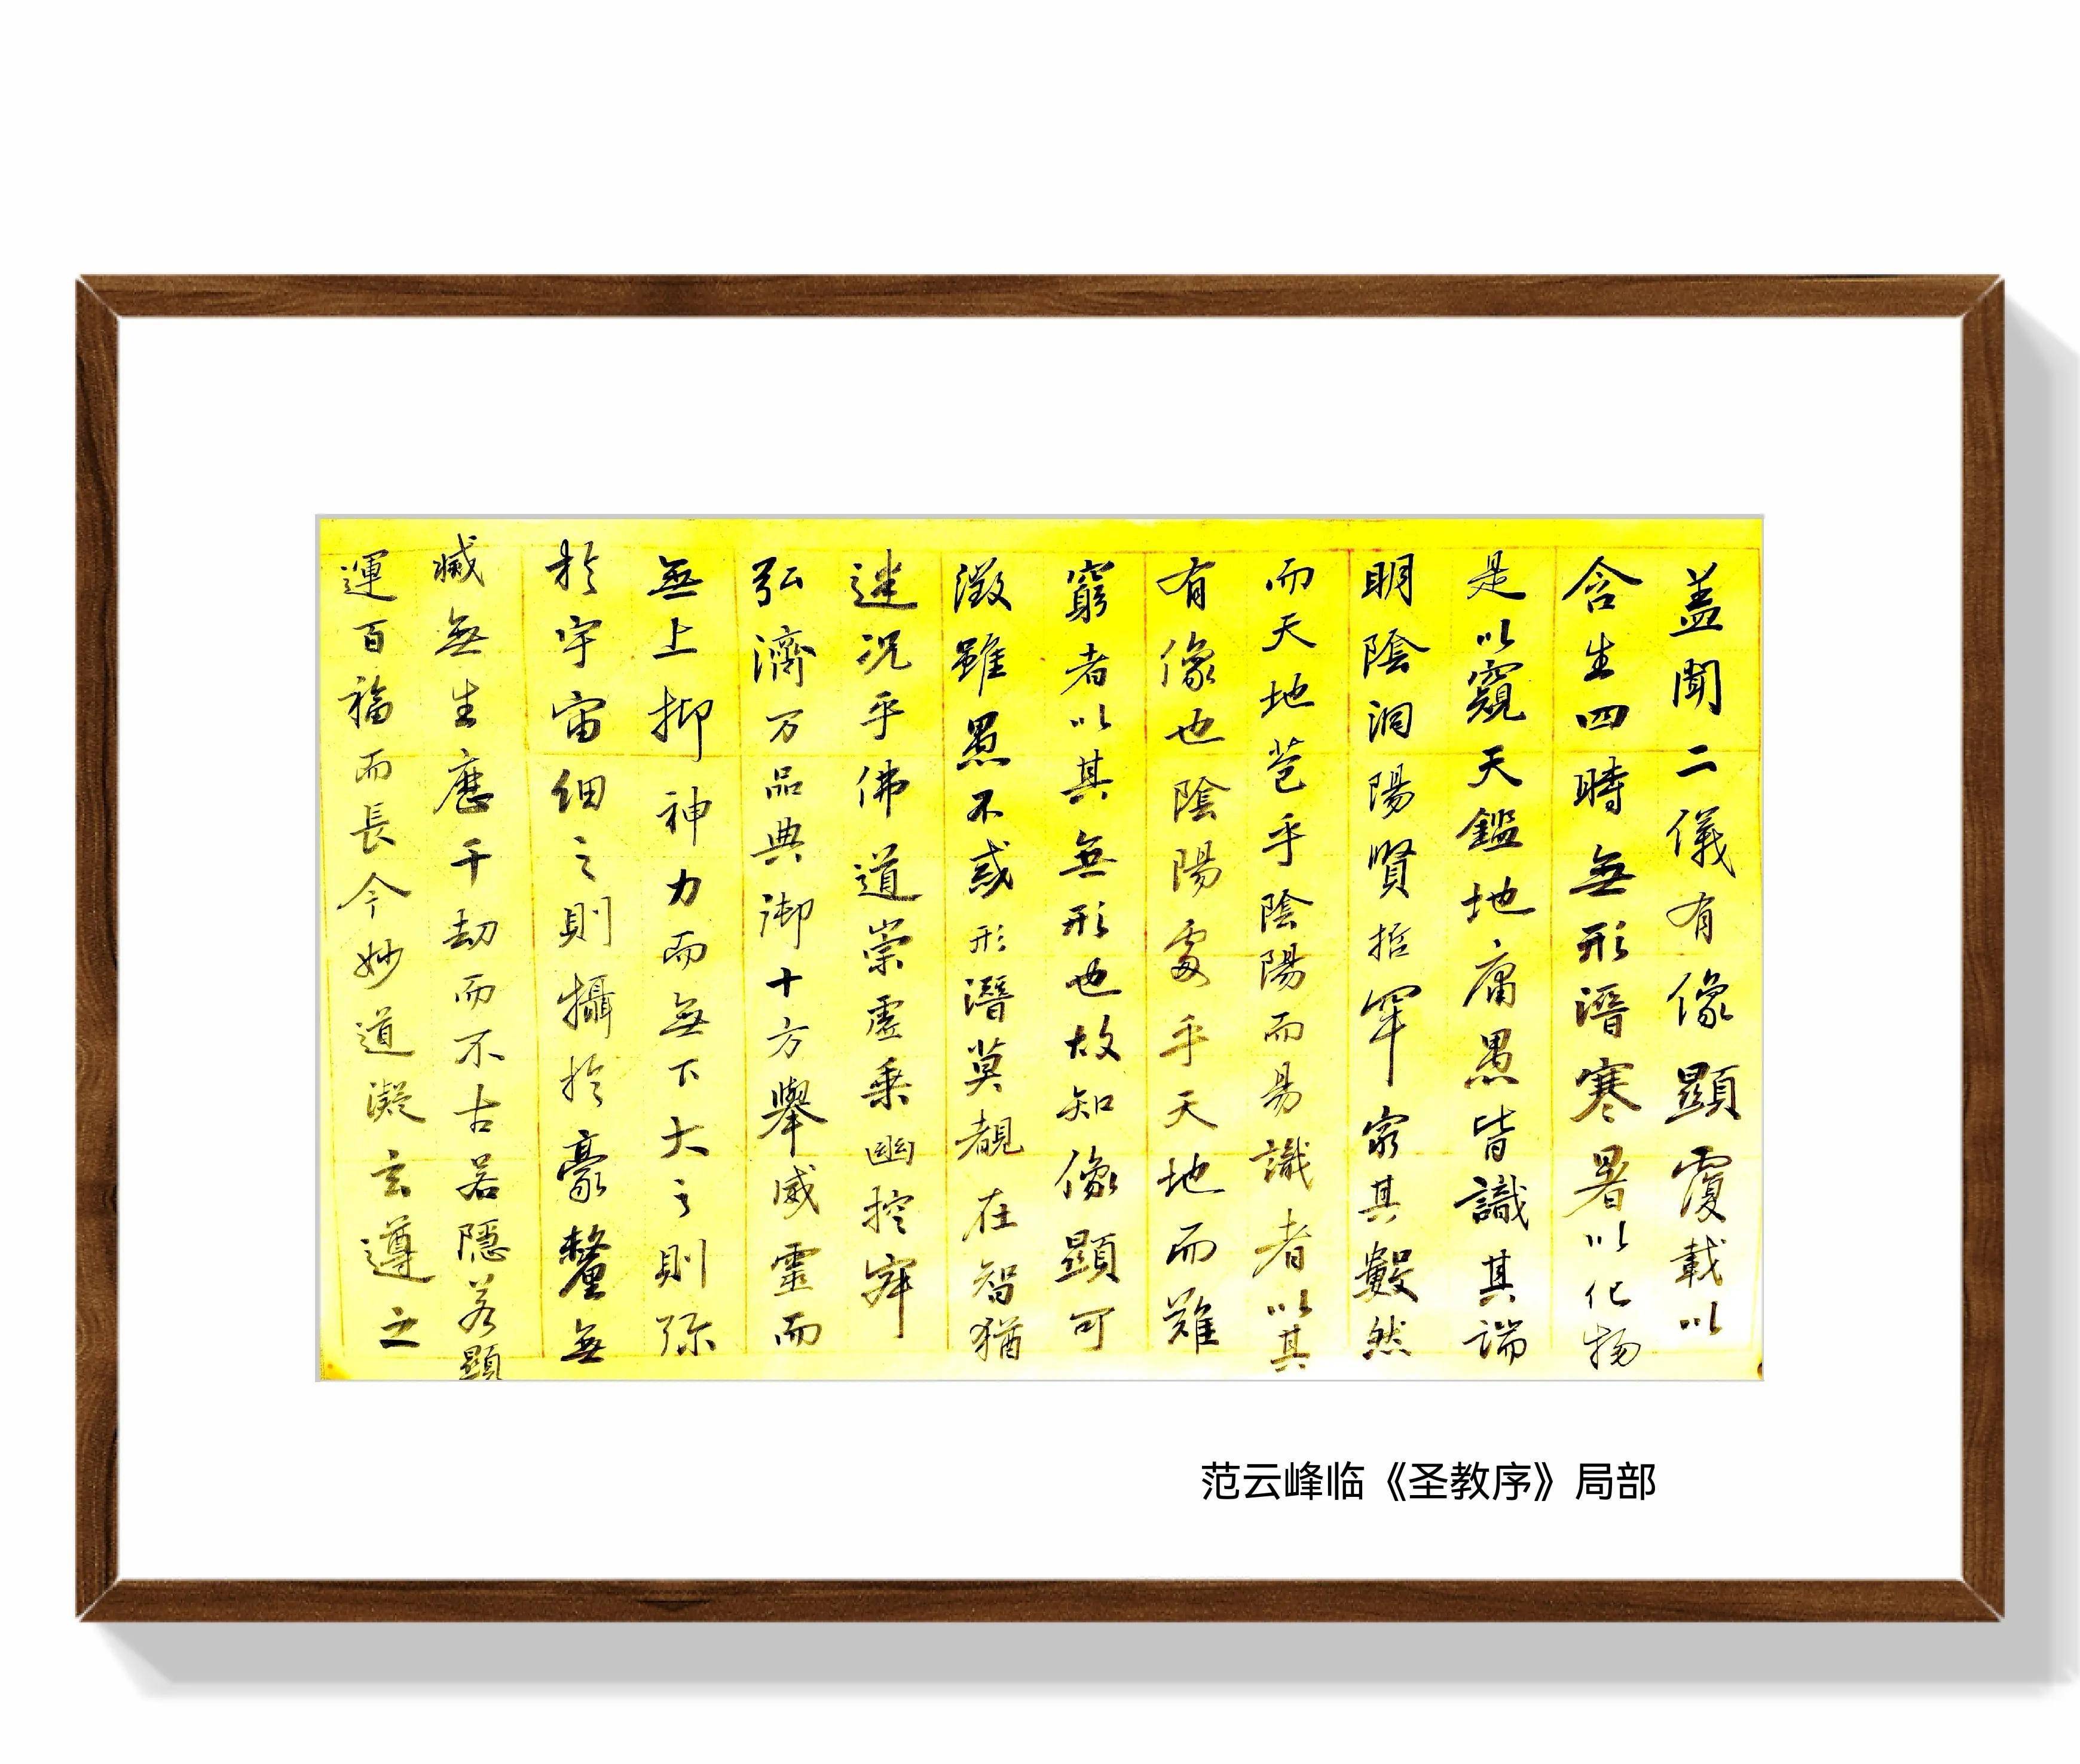 蓋聞二儀有像顯覆載以
含生四時無形潛寒暑以化物
是以窺天鑑地庸愚皆識其端
明陰洞陽賢哲罕窮其數然
而天地苞乎陰陽而易識者以其
有像也陰陽處乎天地而難
窮者以其無形也故知像顯可
徵雖愚不惑形潛莫覩在智猶
迷況乎佛道崇虛乘幽控寂
弘濟万品典御十方舉威靈而
無上抑神力而無下大之則弥
於宇宙細之則攝於豪釐無
滅無生歷千劫而不古若隱若顯
運百福而長今妙道凝玄遵之
范云峰临《圣教序》局部